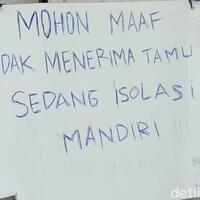 MOHON MAAF
DAK MENERIMA TAMU
SEDANG ISOLASI
MANDIRI !!!
detik